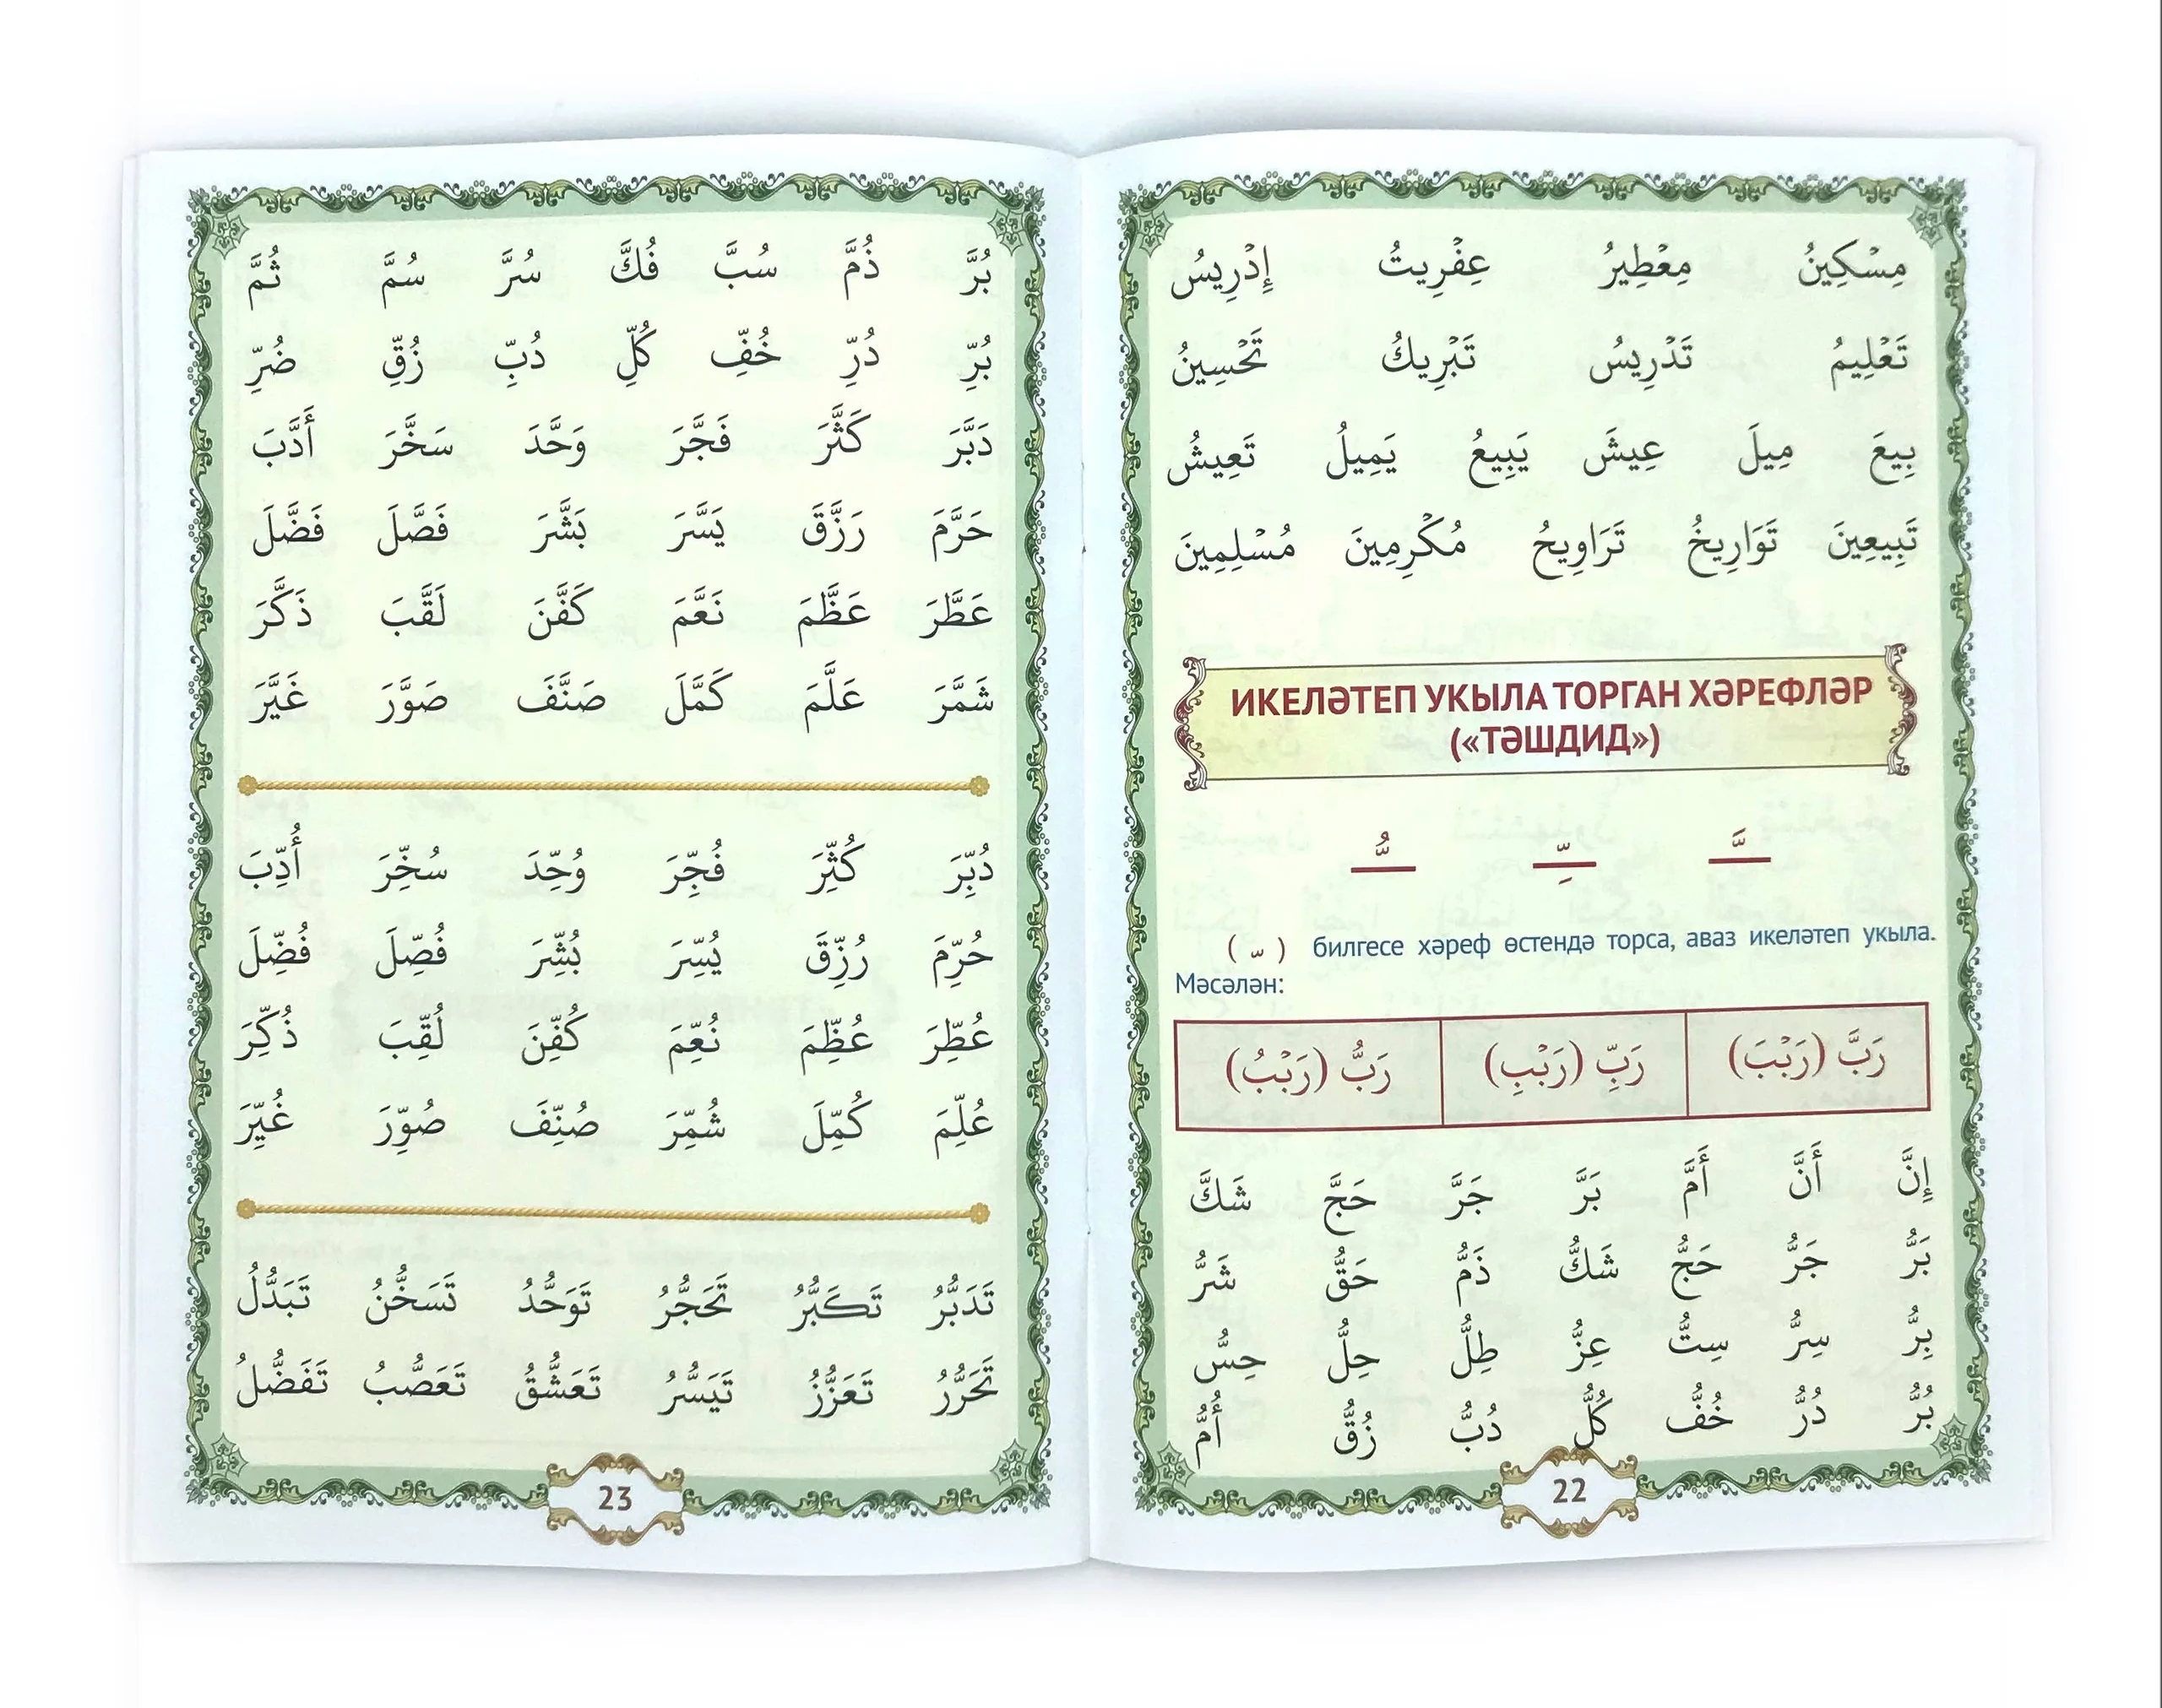 مِسْكِينُ مِعْطِيرُ عِفْرِيتُ إِدْرِيسُ
تَعْلِيمُ تَدْرِيسُ تَبْرِيكُ تَحْسِينُ
بِيعَ مِيلَ عِيشَ يَبِيعُ يَمِيلُ تَعِيشُ
تَبِيعِينَ تَوَارِيخُ تَرَاوِيحُ مُكْرِمِينَ مُسْلِمِينَ
ИКЕЛӘТЕП УКЫЛА ТОРГАН ХӘРЕФЛӘР
(«ТӘШДИД»)
ـَّ ـِّ ـُّ
( ـّ ) билгесе хәреф өстендә торса, аваз икеләтеп укыла.
Мәсәлән:
رَبَّ (رَبْبَ) رَبِّ (رَبْبِ) رَبُّ (رَبْبُ)
إِنَّ أَنَّ أَمَّ بَرَّ جَرَّ حَجَّ شَكَّ
بَرُّ جَرُّ حَجُّ شَكُّ ذَمُّ حَقُّ شَرُّ
بِرُّ سِرُّ سِتُّ عِزُّ طِلُّ حِلُّ حِسُّ
بُرُّ دُرُّ خُفُّ كُلُّ دُبُّ زُقُّ أُمُّ
22
بُرَّ ذُمَّ سُبَّ فُكَّ سُرَّ سُمَّ ثُمَّ
بُرِّ دُرِّ خُفِّ كُلِّ دُبِّ زُقِّ ضُرِّ
دَبَّرَ كَثَّرَ فَجَّرَ وَحَّدَ سَخَّرَ أَدَّبَ
حَرَّمَ رَزَّقَ يَسَّرَ بَشَّرَ فَصَّلَ فَضَّلَ
عَطَّرَ عَظَّمَ نَعَّمَ كَفَّنَ لَقَّبَ ذَكَّرَ
شَمَّرَ عَلَّمَ كَمَّلَ صَنَّفَ صَوَّرَ غَيَّرَ
دُبِّرَ كُثِّرَ فُجِّرَ وُحِّدَ سُخِّرَ أُدِّبَ
حُرِّمَ رُزِّقَ يُسِّرَ بُشِّرَ فُصِّلَ فُضِّلَ
عُطِّرَ عُظِّمَ نُعِّمَ كُفِّنَ لُقِّبَ ذُكِّرَ
عُلِّمَ كُمِّلَ شُمِّرَ صُنِّفَ صُوِّرَ غُيِّرَ
تَدَبُّرُ تَكَبُّرُ تَحَجُّرُ تَوَحُّدُ تَسَخُّنُ تَبَدُّلُ
تَحَرُّرُ تَعَزُّزُ تَيَسُّرُ تَعَشُّقُ تَعَصُّبُ تَفَضُّلُ
23